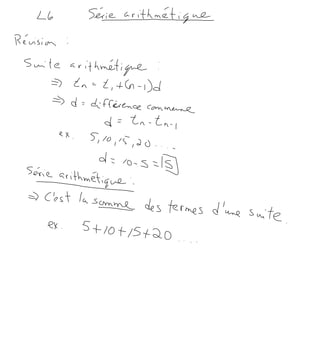 L6 Série arithmétique
Révision :
Suite arithmétique :
⇒ tn = t1 + (n-1)d
⇒ d = différence commune
d = tn - tn-1
ex. 5, 10, 15, 20 ....
d = 10 - 5 = 5
Série arithmétique :
⇒ C'est la somme des termes d'une suite.
ex. 5+10+15+20 ....